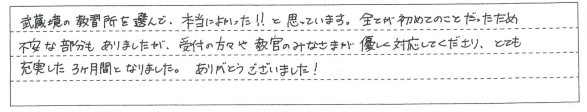 武蔵境の教習所を選んで、本当によかった!!と思っています。全てが初めてのことだったため
不安な部分もありましたが、受付の方々や教官のみなさまが優しく対応してくださり、とても
充実した3ヶ月間となりました。ありがとうございました!